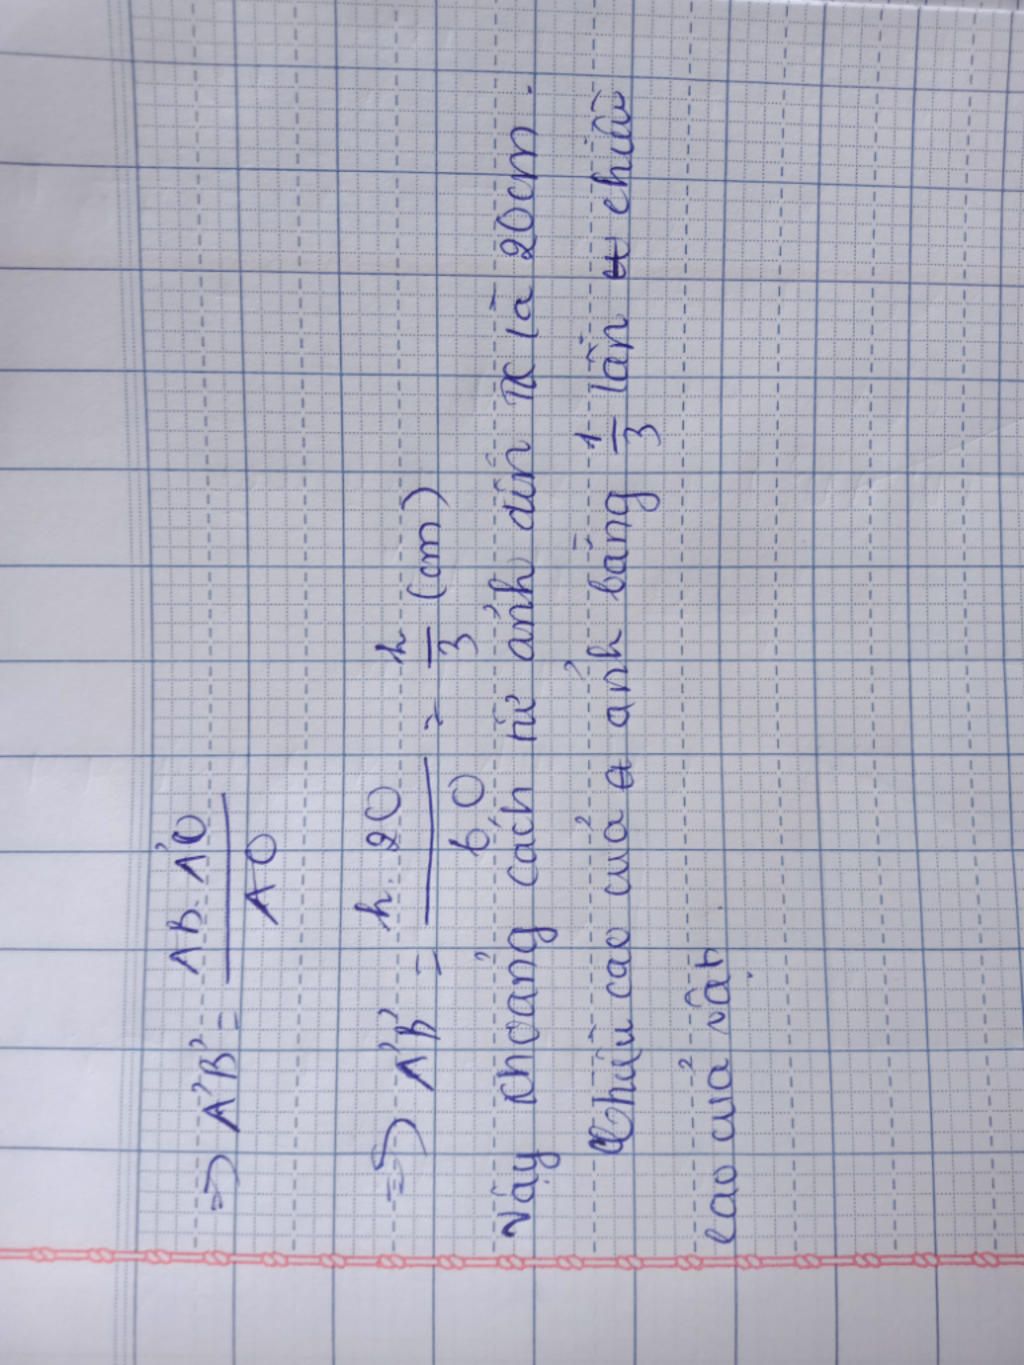 => A'B' = AB. A'O / AO
=> A'B' = h. 20 / 60 = h/3 (cm)
Vậy khoảng cách từ ảnh đến TK là 20cm.
Chiều cao của ảnh bằng 1/3 lần chiều
cao của vật.